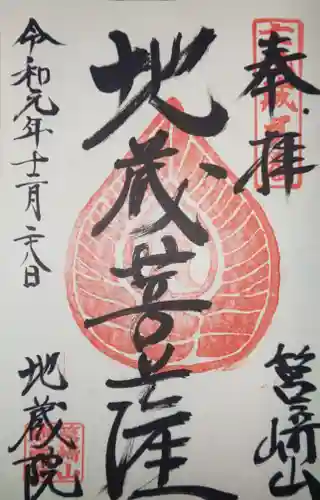 奉拝
筥崎山
地蔵菩薩
令和元年十二月二八日
地蔵院